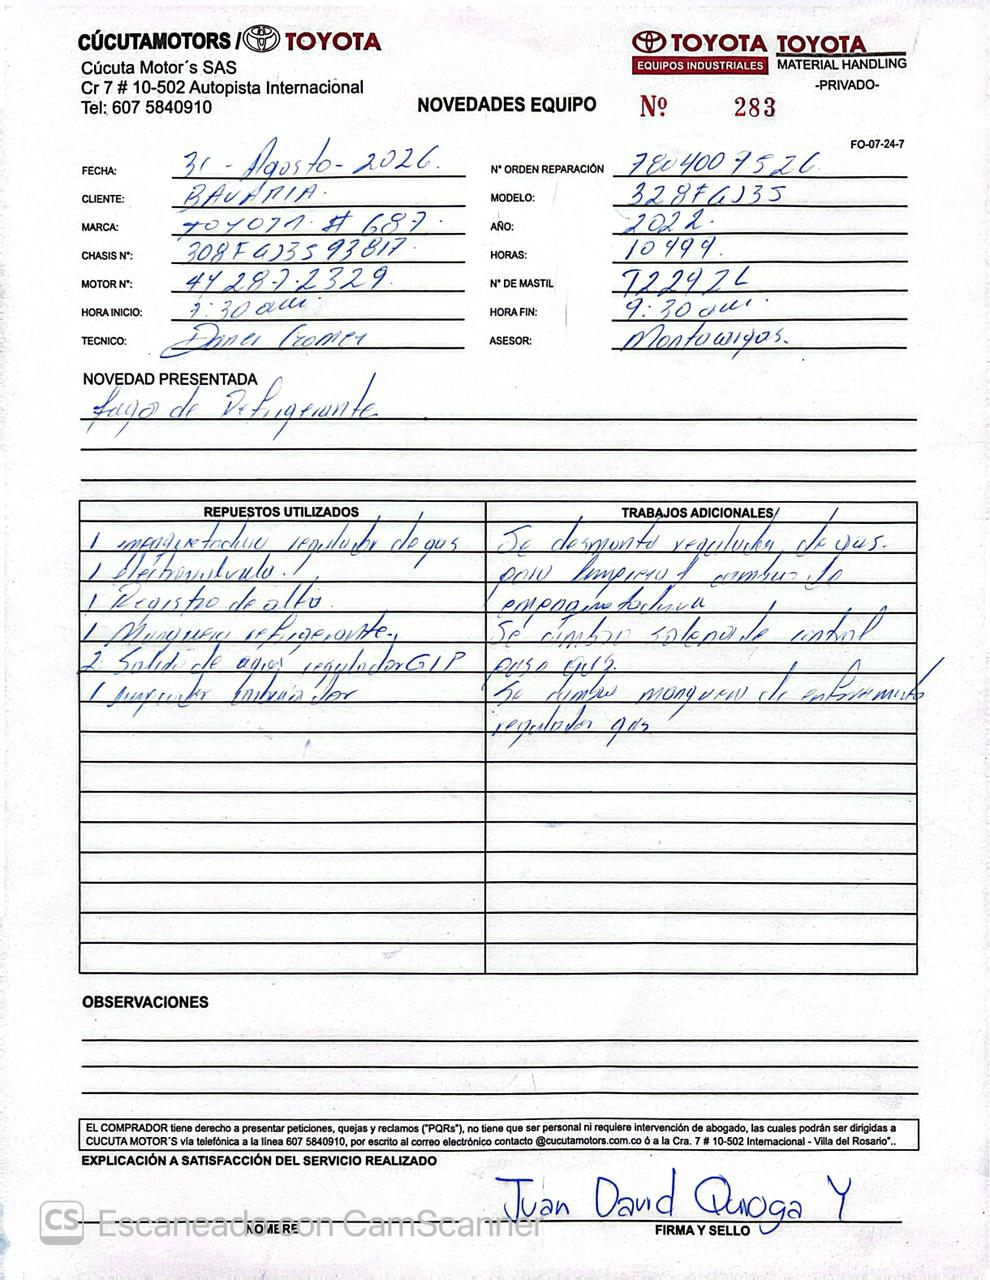 CÚCUTAMOTORS / TOYOTA
Cúcuta Motor´s SAS
Cr 7 # 10-502 Autopista Internacional
Tel: 607 5840910
TOYOTA
EQUIPOS INDUSTRIALES
TOYOTA
MATERIAL HANDLING
-PRIVADO-
NOVEDADES EQUIPO
Nº 283
FO-07-24-7
FECHA: 31 - Agosto - 2026.
N° ORDEN REPARACIÓN
CLIENTE: BAVARIA.
MODELO: 328FGJ35
MARCA: TOYOTA # 687.
AÑO: 2022.
CHASIS N°: 308FGJ35 93817.
HORAS: 10494.
MOTOR N°: 44 287-2329.
N° DE MASTIL
HORA INICIO: 7:30 am
HORA FIN: 9:30 am.
TECNICO:
ASESOR:
NOVEDAD PRESENTADA
fuga de Refrigerante
REPUESTOS UTILIZADOS
TRABAJOS ADICIONALES
1 empaquetadura regulador de gas
1 electrovalvula.
1 Registro de alta.
1 Manguera refrigerante.
2 Salida de agua regulador GLP
1
Se desmonta regulador de gas.
para limpieza y cambio de
empaquetadura
Se cambio solenoide control
paso gas.
Se cambio manguera de enfriamiento
regulador gas
OBSERVACIONES
EL COMPRADOR tiene derecho a presentar peticiones, quejas y reclamos ("PQRs"), no tiene que ser personal ni requiere intervención de abogado, las cuales podrán ser dirigidas a
CUCUTA MOTOR´S vía telefónica a la línea 607 5840910, por escrito al correo electrónico contacto @cucutamotors.com.co ó a la Cra. 7 # 10-502 Internacional - Villa del Rosario"..
EXPLICACIÓN A SATISFACCIÓN DEL SERVICIO REALIZADO
Juan David Quiroga Y
NOMBRE
FIRMA Y SELLO
CS Escaneado con CamScanner